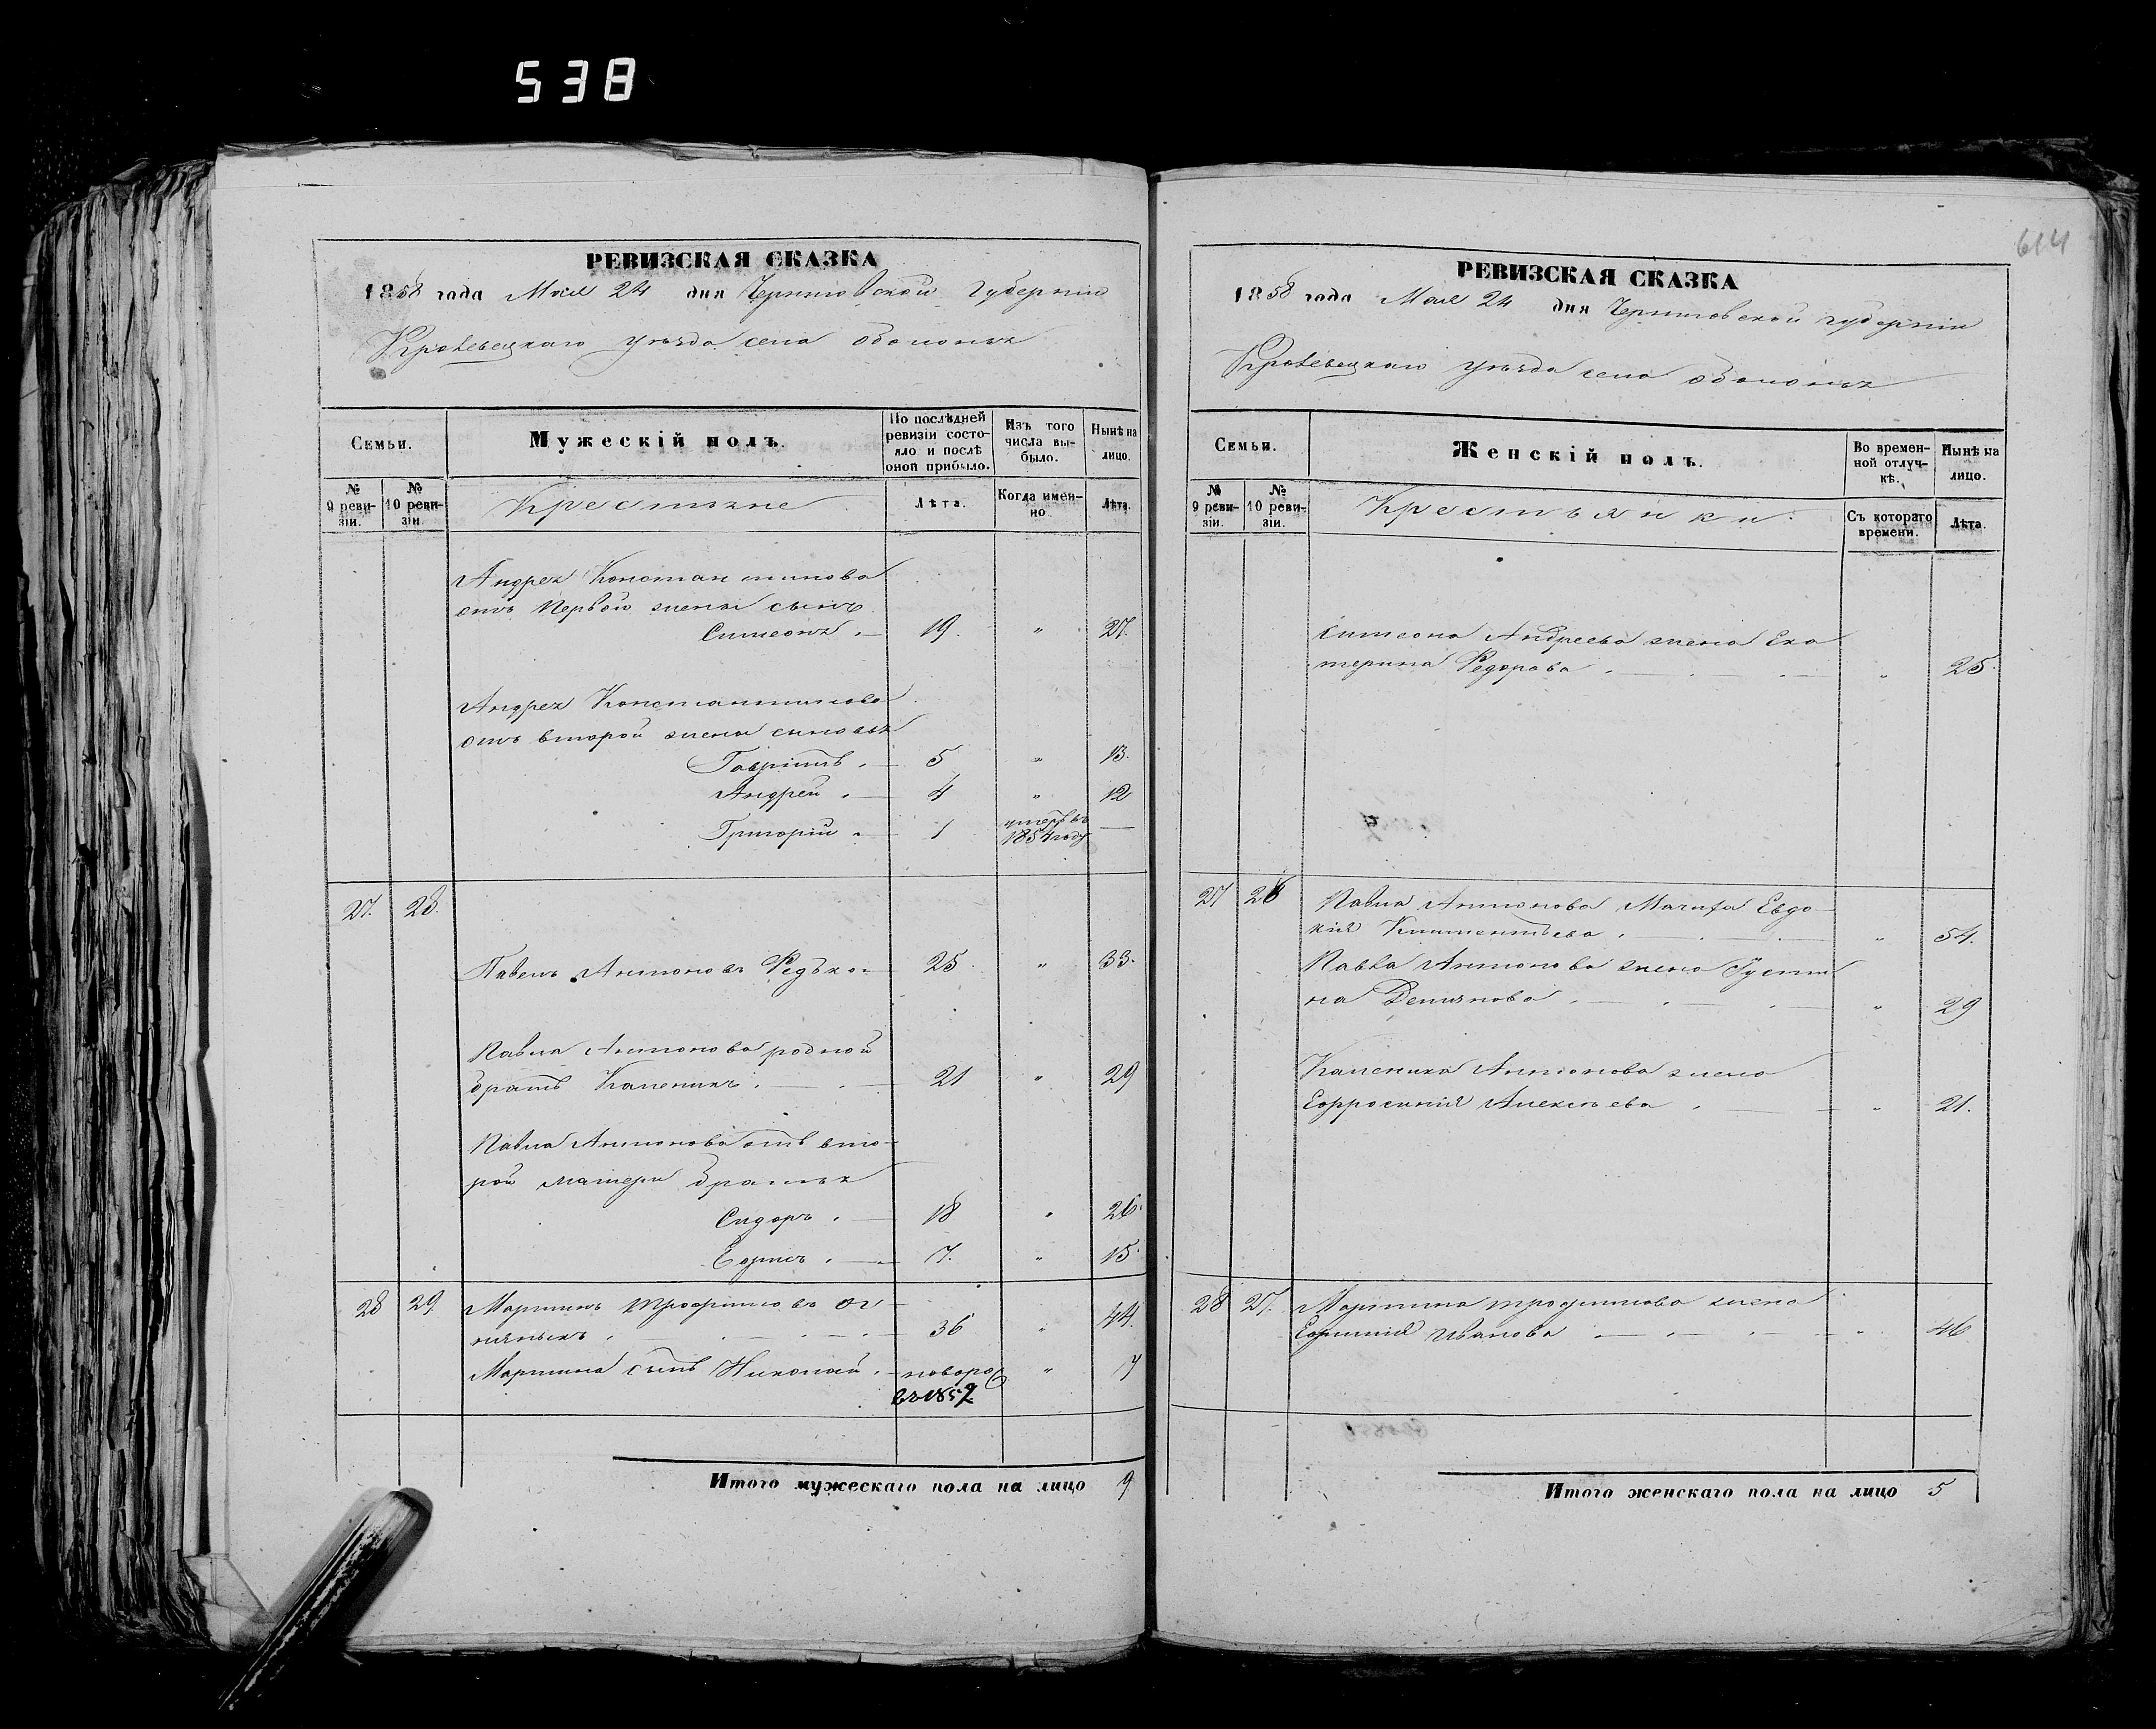 538
РЕВИЗСКАЯ СКАЗКА
1858 года Мая 24 дня Черниговской Губернии
Кролевецкаго уѣзда села Оболонья
Семьи.
Мужескій полъ.
По послѣдней ревизіи состояло и послѣ оной прибыло.
Изъ того числа выбыло.
Нынѣ на лицо.
№ 9 ревизіи.
№ 10 ревизіи.
Крестьяне
Лѣта.
Когда именно
Лѣта.
Андрея Константинова
отъ Первой жены сынъ
Симеонъ . — 19. " 27.
Андрея Константинова
отъ второй жены сыновья
Гавріилъ . — 5 " 13.
Андрей . — 4 " 12
Григорій . — 1 умеръ въ 1854 году —
27. 28.
Павелъ Антоновъ Редько — 25 " 33.
Павла Антонова родной
братъ Каленикъ . — 21 " 29
Павла Антонова отъ вто-
рой матери братья
Сидоръ . — 18 " 26.
Борисъ . — 7. " 15.
28 29. Мартинъ Трофимовъ
36 " 44.
Мартина сынъ Николай . — новорож
въ 185
Итого мужескаго пола на лицо 9
614
РЕВИЗСКАЯ СКАЗКА
1858 года Мая 24 дня Черниговской губерніи
Кролевецкаго уѣзда села Оболонья
Семьи.
Женскій полъ.
Во временной отлучкѣ.
Нынѣ на лицо.
№ 9 ревизіи.
№ 10 ревизіи.
Крестьянки.
Съ котораго времени.
Лѣта.
Симеона Андреева жена Ека
терина Федорова . — " 25.
27 28 Павла Антонова Мачиха Евдо-
кія Климентьева . — " 54.
Павла Антонова жена Густи
на Демянова . — " 29
Каленика Антонова жена
Евфросинія Алексѣева . — " 21.
28 29. Мартина Трофимова жена
Евфимія Иванова — " 46
Итого женскаго пола на лицо 5